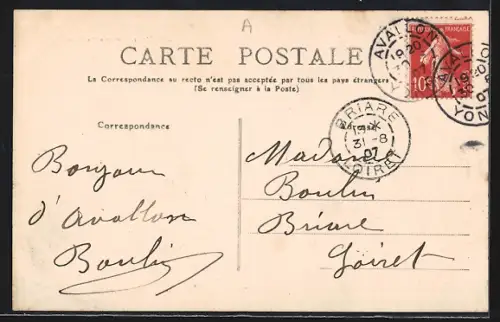 A
CARTE POSTALE
La Correspondance au recto n'est pas acceptée par tous les pays étrangers
(Se renseigner à la Poste)
Correspondance
Bonjour
d'Avallon
Boulin
Madame
Boulin
Briare
Loiret
BRIARE
31-8
07
LOIRET
AVALLON
YONNE
10c